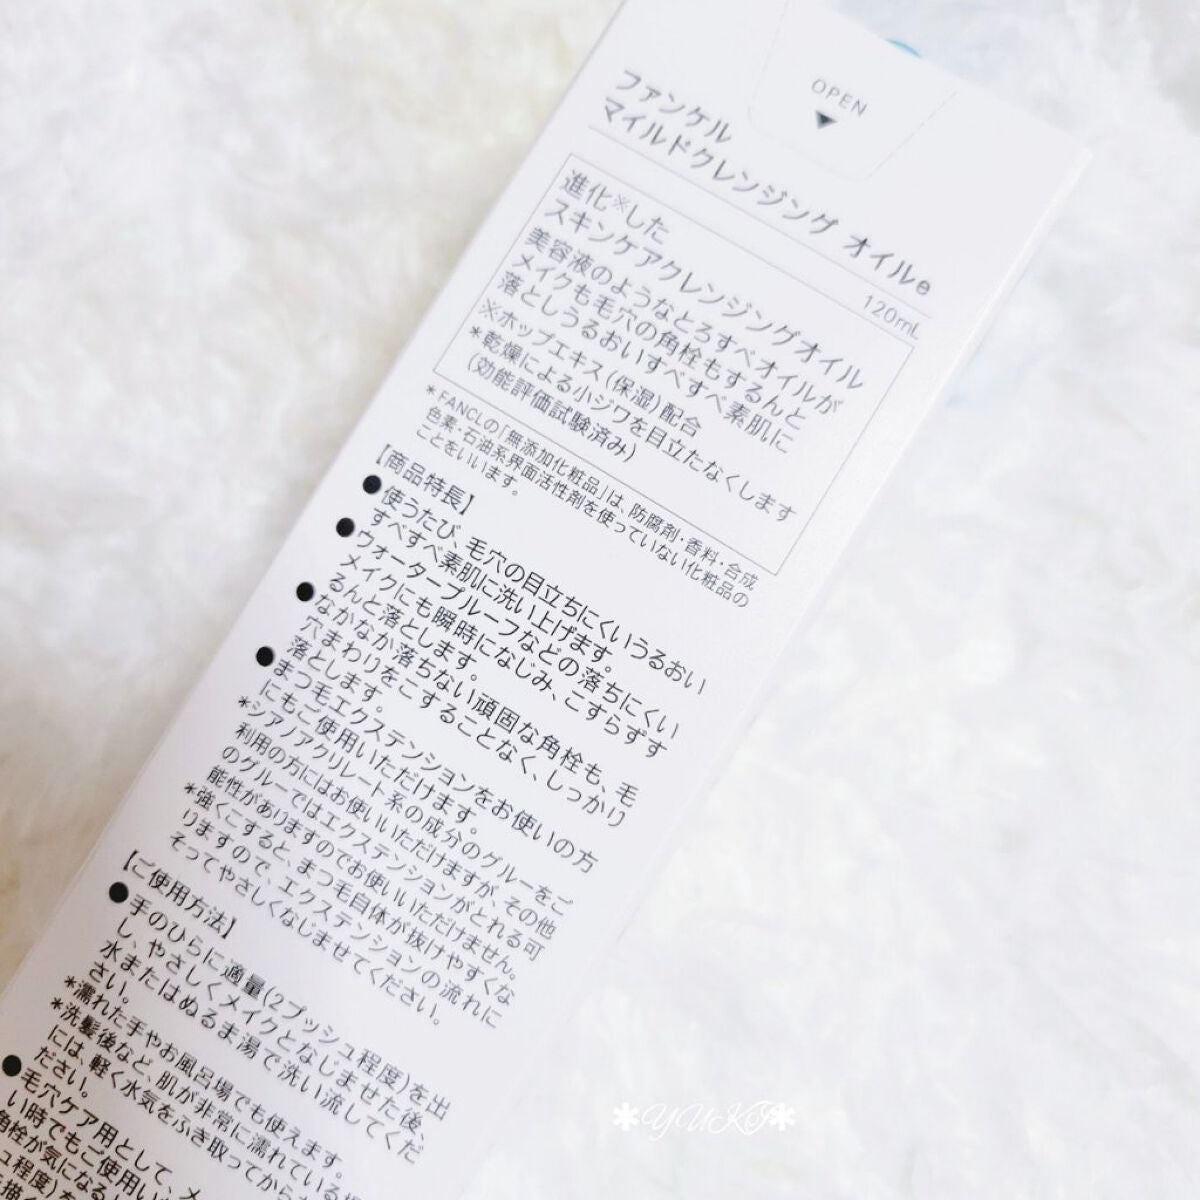 OPEN
ファンケル
マイルドクレンジング オイルe
120mL
進化※した
スキンケアクレンジングオイル
美容液のようなとろすべオイルが
メイクも毛穴の角栓もするんと
落としうるおいすべすべ素肌に
※ホップエキス(保湿)配合
*乾燥による小ジワを目立たなくします
(効能評価試験済み)
*FANCLの「無添加化粧品」は、防腐剤・香料・合成
色素・石油系界面活性剤を使っていない化粧品の
ことをいいます。
【商品特長】
●使うたび、毛穴の目立ちにくいうるおい
すべすべ素肌に洗い上げます。
●ウォータープルーフなどの落ちにくい
メイクにも瞬時になじみ、こすらずす
るんと落とします。
●なかなか落ちない頑固な角栓も、毛
穴まわりをこすることなく、しっかり
落とします。
●まつ毛エクステンションをお使いの方
にもご使用いただけます。
*シアノアクリレート系の成分のグルーをご
利用の方にはお使いいただけますが、その他
のグルーではエクステンションがとれる可
能性がありますのでお使いいただけません。
*強くこすると、まつ毛自体が抜けやすくな
りますので、エクステンションの流れに
そってやさしくなじませてください。
【ご使用方法】
●手のひらに適量(2プッシュ程度)を出
し、やさしくメイクとなじませた後、
水またはぬるま湯で洗い流してくだ
さい。
*濡れた手やお風呂場でも使えます。
*洗髪後など、肌が非常に濡れている
には、軽く水気をふき取ってから
ださい。
●毛穴ケア用として、メ
い時でもご使用い
角栓が気になる
ュ程度)を
*YUKO*